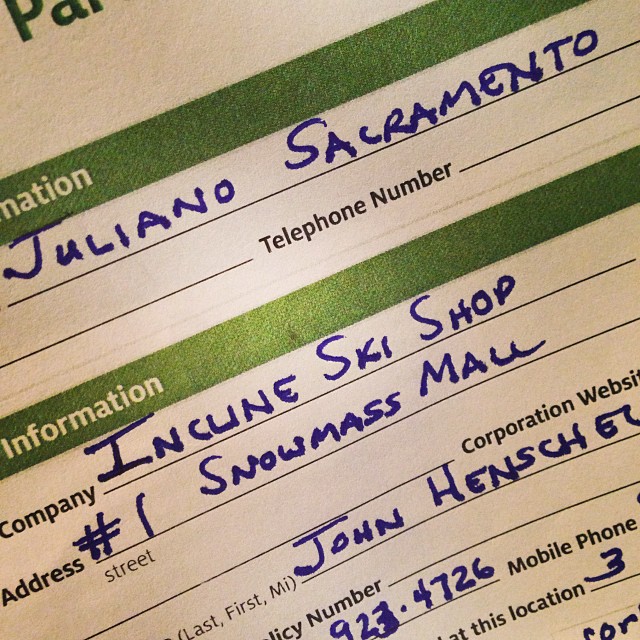 Par
mation
JULIANO SACRAMENTO
Telephone Number
Information
Company INCLINE SKI SHOP
Address #1 SNOWMASS MALL
street
Corporation Websit
(Last, First, Mi) JOHN HENSCHEL
licy Number
923.4726 Mobile Phone
at this location 3